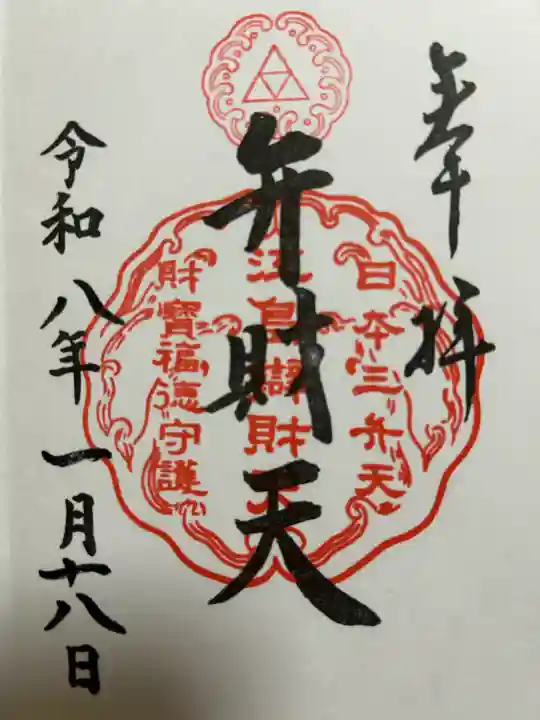 奉拝
日本三弁天
江島辯財天
財寶福徳守護
弁財天
令和八年一月十八日